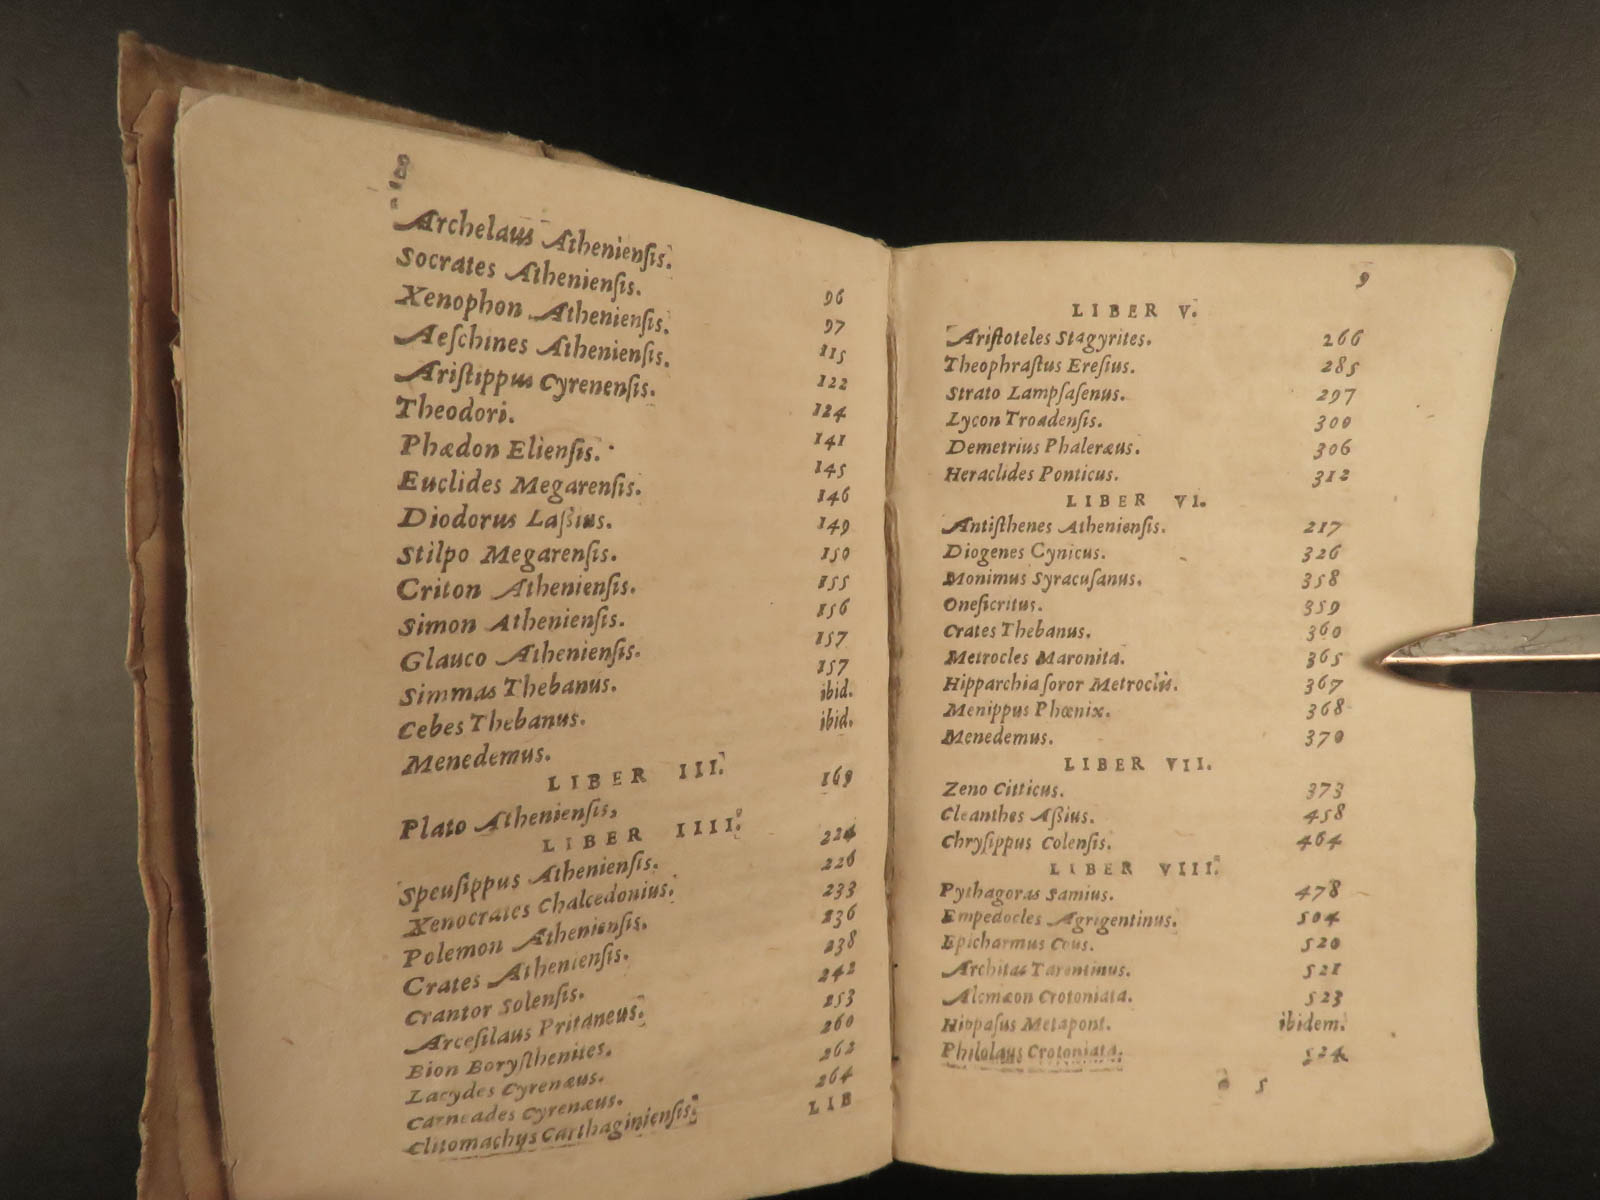 8
Archelaus Athenienſis. 96
Socrates Athenienſis. 97
Xenophon Athenienſis. 115
Aeſchines Athenienſis. 122
Ariſtippus Cyrenenſis. 124
Theodori. 141
Phædon Elienſis. 145
Euclides Megarenſis. 146
Diodorus Laſsius. 149
Stilpo Megarenſis. 150
Criton Athenienſis. 155
Simon Athenienſis. 156
Glauco Athenienſis. 157
Simmas Thebanus. 157
Cebes Thebanus. ibid.
Menedemus. ibid.
LIBER III.
Plato Athenienſis, 169
LIBER IIII.
Speuſippus Athenienſis. 224
Xenocrates Chalcedonius. 226
Polemon Athenienſis. 233
Crates Athenienſis. 236
Crantor Solenſis. 238
Arceſilaus Pritaneus. 242
Bion Boryſthenites. 253
Lacydes Cyrenæus. 260
Carneades Cyrenæus. 262
Clitomachus Carthaginienſis. 264
LIB
9
LIBER V.
Ariſtoteles Stagyrites. 266
Theophraſtus Ereſius. 285
Strato Lampſaſenus. 297
Lycon Troadenſis. 300
Demetrius Phaleræus. 306
Heraclides Ponticus. 312
LIBER VI.
Antiſthenes Athenienſis. 217
Diogenes Cynicus. 326
Monimus Syracuſanus. 358
Oneſicritus. 359
Crates Thebanus. 360
Metrocles Maronita. 365
Hipparchia ſoror Metroclis. 367
Menippus Phœnix. 368
Menedemus. 370
LIBER VII.
Zeno Citticus. 373
Cleanthes Aſsius. 458
Chryſippus Colenſis. 464
LIBER VIII.
Pythagoras Samius. 478
Empedocles Agrigentinus. 504
Epicharmus Cous. 520
Architas Tarentinus. 521
Alcmæon Crotoniata. 523
Hippaſus Metapont. ibidem.
Philolaus Crotoniata. 524
5